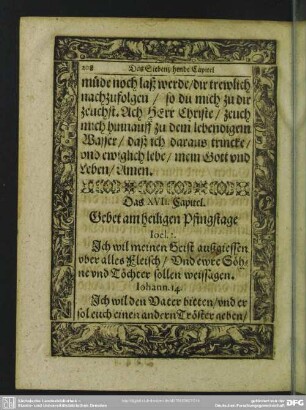 208 Das Siebenzehende Capitel
müde noch laß werde/dir trewlich
nachzufolgen / so du mich zu dir
zeuchst. Ach HErr Christe / zeuch
mich hinnauff zu dem lebendigem
Wasser / daß ich daraus trincke/
vnd ewiglich lebe / mein Gott vnd
Leben / Amen.
Das XVII. Capitel.
Gebet am heiligen Pfingstage
Ioel. 2.
Ich wil meinen Geist außgiessen
vber alles Fleisch / Vnd ewre Söh-
ne vnd Töchter sollen weissagen.
Iohann. 14.
Ich wil den Vater bitten/ vnd er
sol euch einen andern Tröster geben/